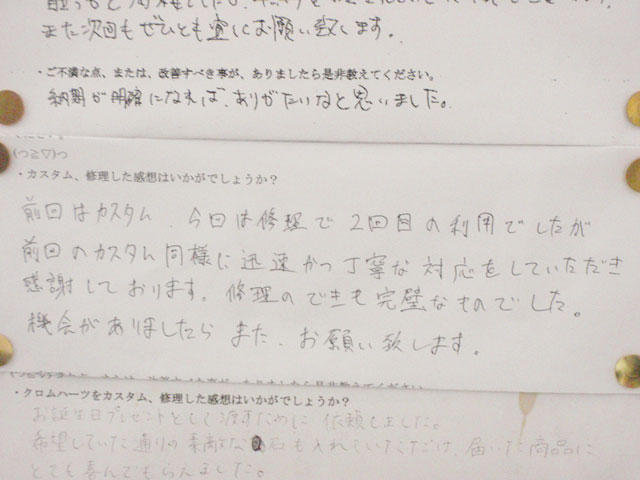 また次回もぜひとも宜しくお願い致します。
・ご不満な点、または、改善すべき事が、ありましたら是非教えてください。
納期が明確になれば、ありがたいなと思いました。
(つ≧▽)つ
・カスタム、修理した感想はいかがでしょうか？
前回はカスタム、今回は修理で2回目の利用でしたが
前回のカスタム同様に迅速かつ丁寧な対応をしていただき
感謝しております。修理のできも完璧なものでした。
機会がありましたらまた、お願い致します。
・クロムハーツをカスタム、修理した感想はいかがでしょうか？
お誕生日プレゼントとして渡すために依頼しました。
希望していた通りの素敵な石も入れていただけ、届いた商品に
とても喜んでもらえました。